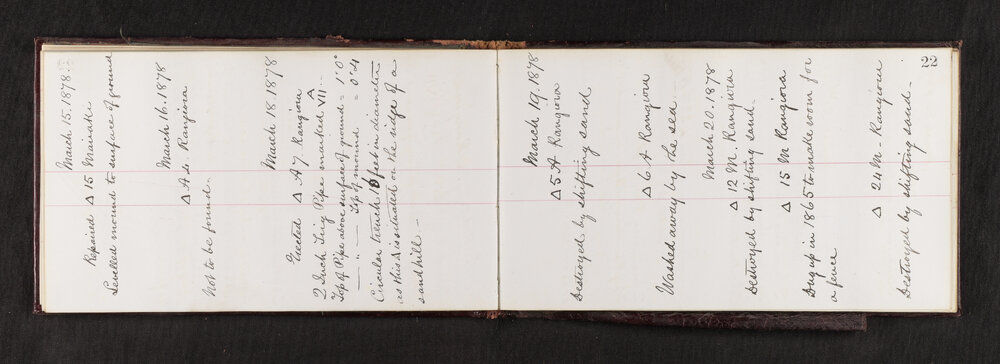 March 15. 1878
Repaired △ 15 Mairaki
Levelled mound to surface of ground
March 16. 1878
△ A 4. Rangiora
Not to be found.
March 18. 1878
Erected △ A 7 Rangiora
2 Inch Iron Pipe marked A VII.
Top of Pipe above surface of ground = 1' 0"
— " — Top of mound = 0' 4
Circular trench 6 feet in diameter
as this △ is situated on the ridge of a
sandhill —
22
March 19. 1878
△ 5 A Rangiora
Destroyed by shifting sand
△ 6 A Rangiora
Washed away by the sea
March 20. 1878
△ 12 M. Rangiora
Destroyed by shifting sand.
△ 15 M Rangiora
Dug up in 1865 to make room for
a fence
△ 24 M – Rangiora
Destroyed by shifting sand.